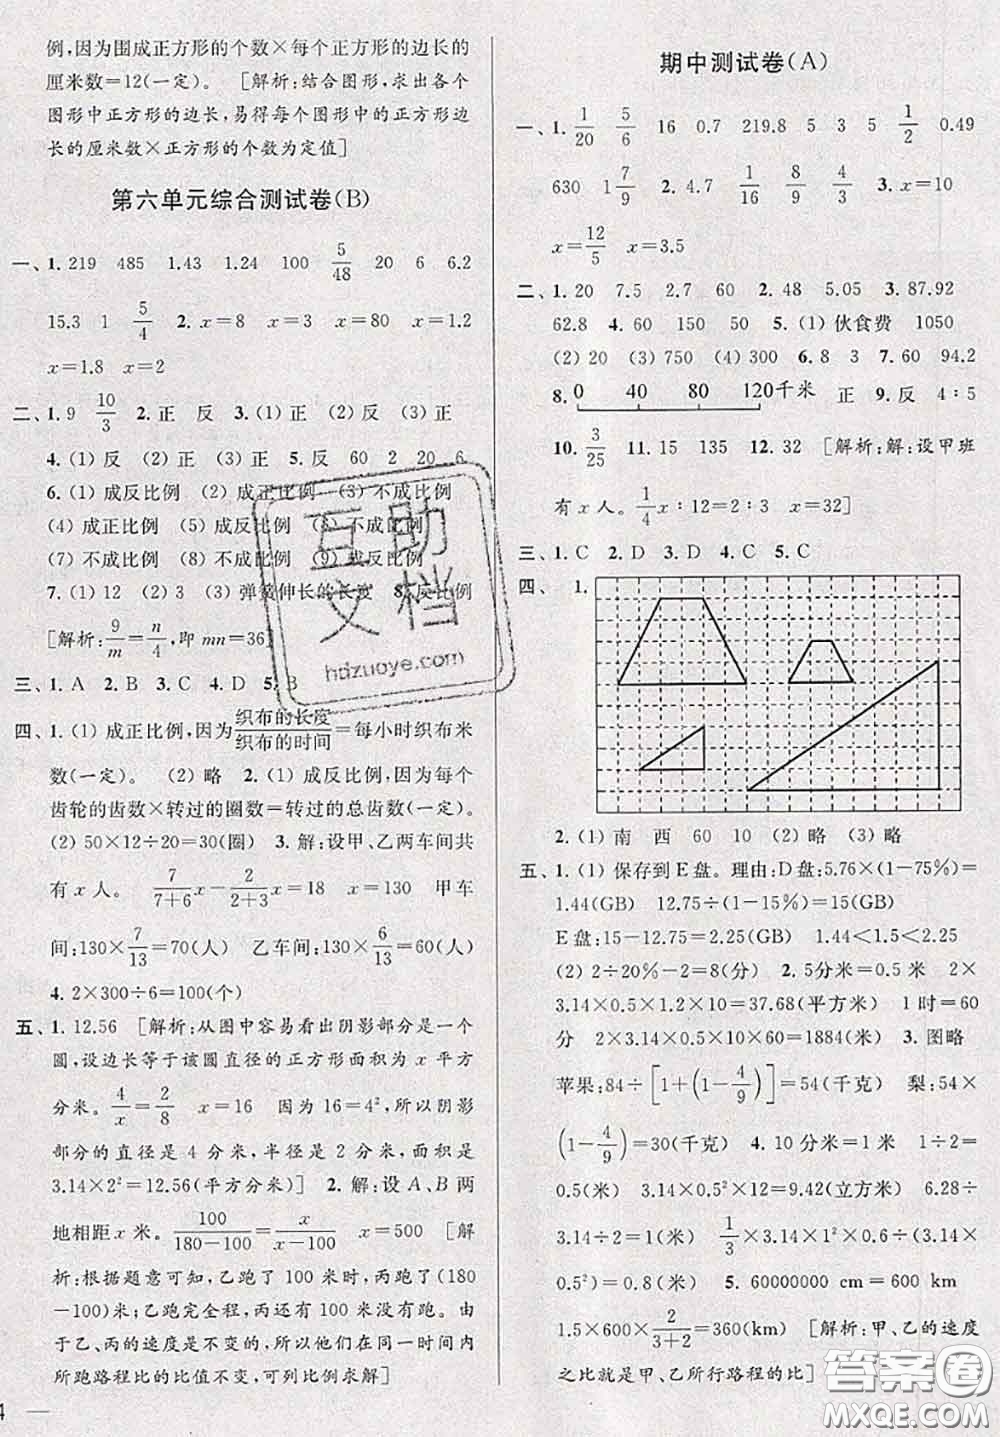 例,因为围成正方形的个数×每个正方形的边长的
厘米数=12(一定)。 [解析:结合图形,求出各个
图形中正方形的边长,易得每个图形中的正方形边
长的厘米数×正方形的个数为定值]
第六单元综合测试卷(B)
一、1. 219 485 1.43 1.24 100 5/48 20 6 6.2
15.3 1 5/4 2. x=8 x=3 x=80 x=1.2
x=1.8 x=2
二、1. 9 10/3 2. 正 反 3. (1) 正 (2) 反 (3) 正
4. (1) 反 (2) 正 (3) 正 5. 反 60 2 20 6
6. (1) 成反比例 (2) 成正比例 (3) 不成比例
(4) 成正比例 (5) 成反比例 (6) 不成比例
(7) 不成比例 (8) 不成比例 (9) 成反比例
7. (1) 12 (2) 3 (3) 弹簧伸长的长度 8. 反比例
[解析:9/m=n/4,即 mn=36]
三、1. A 2. B 3. C 4. D 5. B
四、1. (1) 成正比例,因为织布的长度/织布的时间=每小时织布米
数(一定)。 (2) 略 2. (1) 成反比例,因为每个
齿轮的齿数×转过的圈数=转过的总齿数(一定)。
(2) 50×12÷20=30(圈) 3. 解:设甲、乙两车间共
有 x 人。 7/(7+6)x-2/(2+3)x=18 x=130 甲车
间:130×7/13=70(人) 乙车间:130×6/13=60(人)
4. 2×300÷6=100(个)
五、1. 12.56 [解析:从图中容易看出阴影部分是一个
圆,设边长等于该圆直径的正方形面积为 x 平方
分米。4/x=2/8 x=16 因为 16=4²,所以阴影
部分的直径是 4 分米,半径是 2 分米,面积是
3.14×2²=12.56(平方分米)] 2. 解:设 A、B 两
地相距 x 米。100/(180-100)=x/(x-100) x=500 [解
析:根据题意可知,乙跑了 100 米时,丙跑了(180
-100)米;乙跑完全程,丙还有100米没有跑。由
于乙、丙的速度是不变的,所以他们在同一时间内
所跑路程比的比值不变,可列比例求解]
4
期中测试卷(A)
一、1. 1/20 5/6 16 0.7 219.8 5 3 5 1/2 0.49
630 1 7/9 2. 4.7 1/16 8/9 1/4 3. x=10
x=12/5 x=3.5
二、1. 20 7.5 2.7 60 2. 48 5.05 3. 87.92
62.8 4. 60 150 50 5. (1) 伙食费 1050
(2) 20 (3) 750 (4) 300 6. 8 3 7. 60 94.2
8. 0 40 80 120千米 正 9. 反 4∶5
10. 3/25 11. 15 135 12. 32 [解析:解:设甲班
有 x 人。1/4x∶12=2∶3 x=32]
三、1. C 2. D 3. D 4. C 5. C
四、1.
2. (1) 南 西 60 10 (2) 略 (3) 略
五、1. (1) 保存到 E 盘。理由:D盘:5.76×(1-75%)=
1.44(GB) 12.75÷(1-15%)=15(GB)
E 盘:15-12.75=2.25(GB) 1.44<1.5<2.25
(2) 2÷20%-2=8(分) 2. 5分米=0.5 米 2×
3.14×0.5×1.2×10=37.68(平方米) 1 时=60
分 2×3.14×0.5×10×60=1884(米) 3. 图略
苹果:84÷[1+(1-4/9)]=54(千克) 梨:54×
(1-4/9)=30(千克) 4. 10 分米=1 米 1÷2=
0.5(米) 3.14×1²×2=9.42(立方米) 6.28÷
3.14÷2=1(米) 1/3×3.14×1²×0.6÷(3.14×
0.5²)=0.8(米) 5. 60000000 cm=600 km
1.5×600×2/(3+2)=360(km) [解析:甲、乙的速度
之比就是甲、乙所行路程的比]
互助
文档
hdzuoye.com
答案圈
MXQE.COM